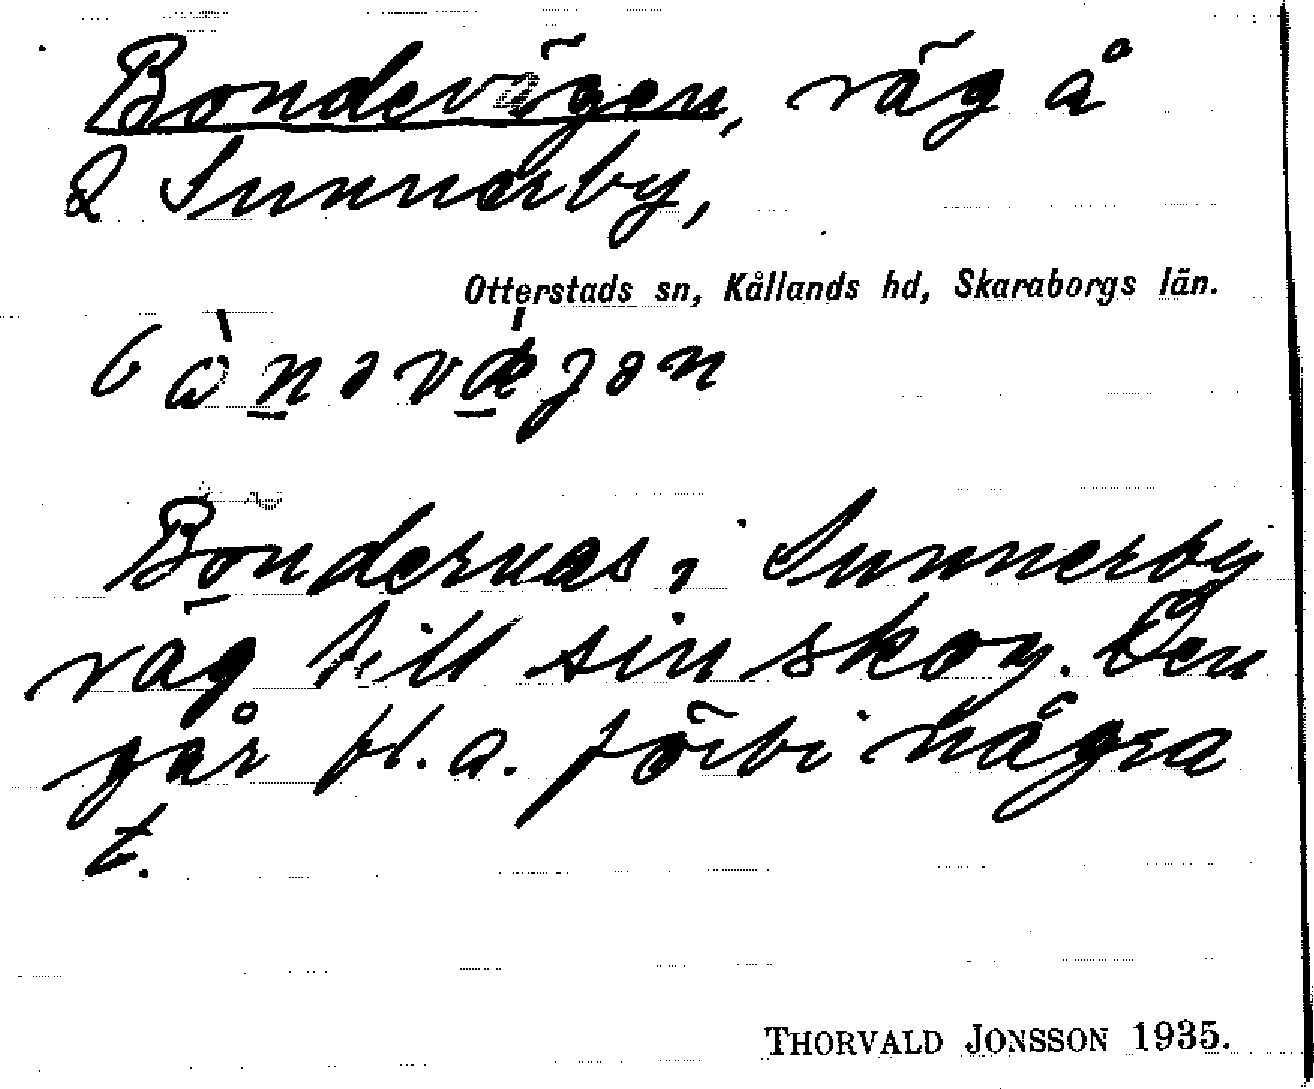 Bondevägen, väg å
2 Sunnerby,
Otterstads sn, Kållands hd, Skaraborgs län.
Böndernas i Sunnerby
väg till sin skog. Den
går bl. a. förbi några
t.
THORVALD JONSSON 1935.